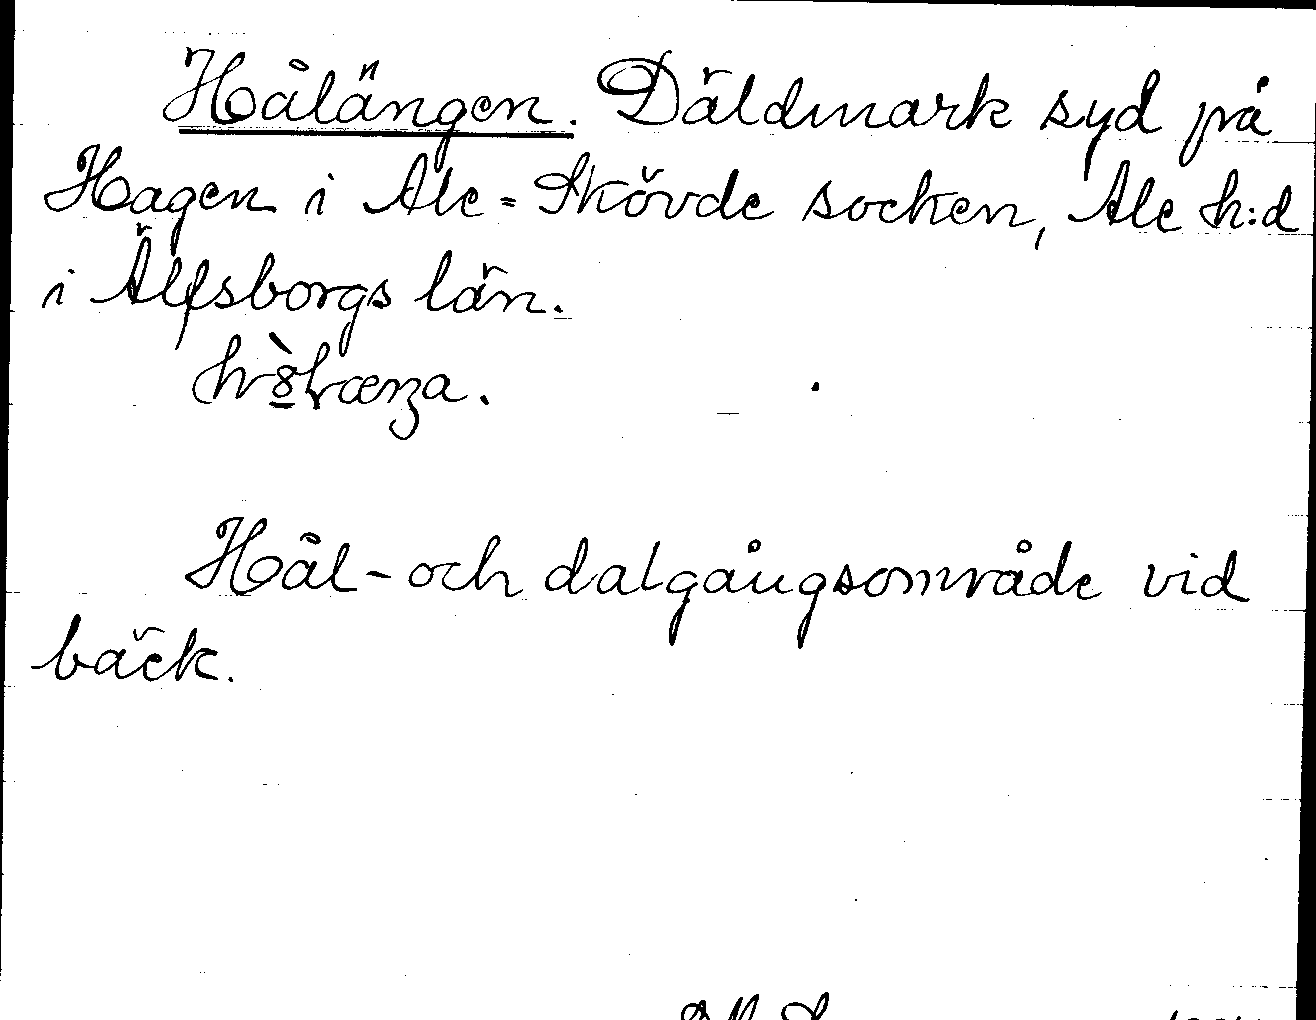 Hålängen. Däldmark syd på
Hagen i Ale-Skövde socken, Ale h:d
i Älfsborgs län.
Hål- och dalgångsområde vid
bäck.